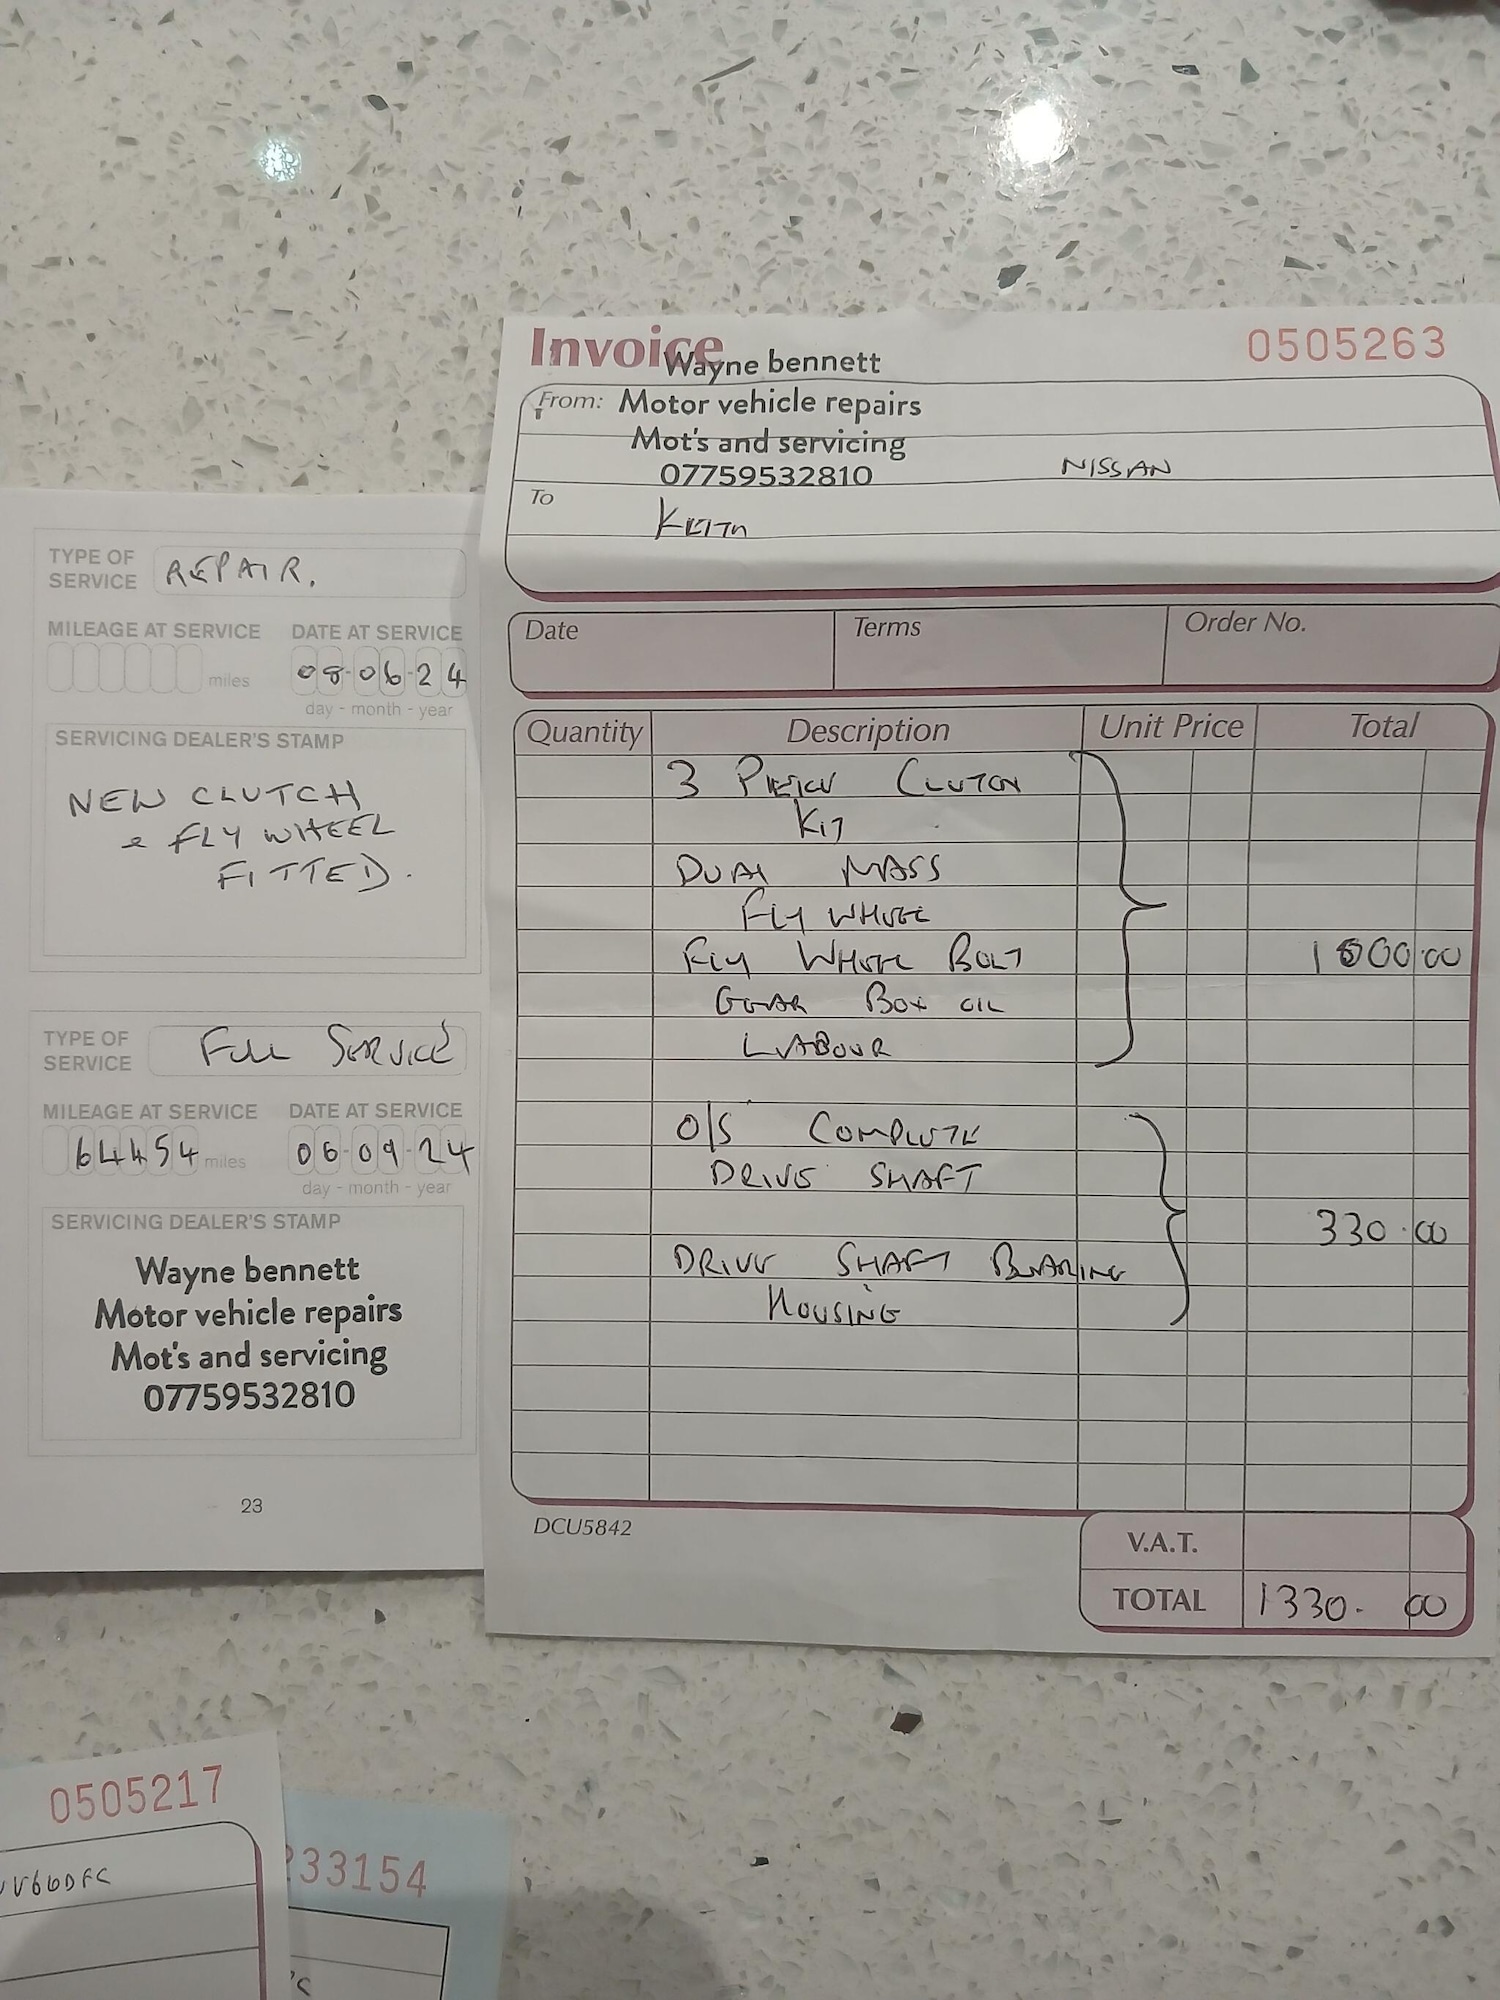 TYPE OF SERVICE REPAIR.
MILEAGE AT SERVICE DATE AT SERVICE
miles 08-06-24
day - month - year
SERVICING DEALER'S STAMP
NEW CLUTCH
& FLY WHEEL
FITTED.
TYPE OF SERVICE FULL SERVICE
MILEAGE AT SERVICE DATE AT SERVICE
64454 miles 06-09-24
day - month - year
SERVICING DEALER'S STAMP
Wayne bennett
Motor vehicle repairs
Mot's and servicing
07759532810
23
Invoice 0505263
Wayne bennett
From: Motor vehicle repairs
Mot's and servicing
07759532810 NISSAN
To
KEITH
Date Terms Order No.
Quantity Description Unit Price Total
3 PIECE CLUTCH
KIT
DUAL MASS
FLY WHEEL
FLY WHEEL BOLT 1000.00
GEAR BOX OIL
LABOUR
O/S COMPLETE
DRIVE SHAFT
330.00
DRIVE SHAFT BEARING
HOUSING
DCU5842
V.A.T.
TOTAL 1330.00
0505217
V66DFC
233154